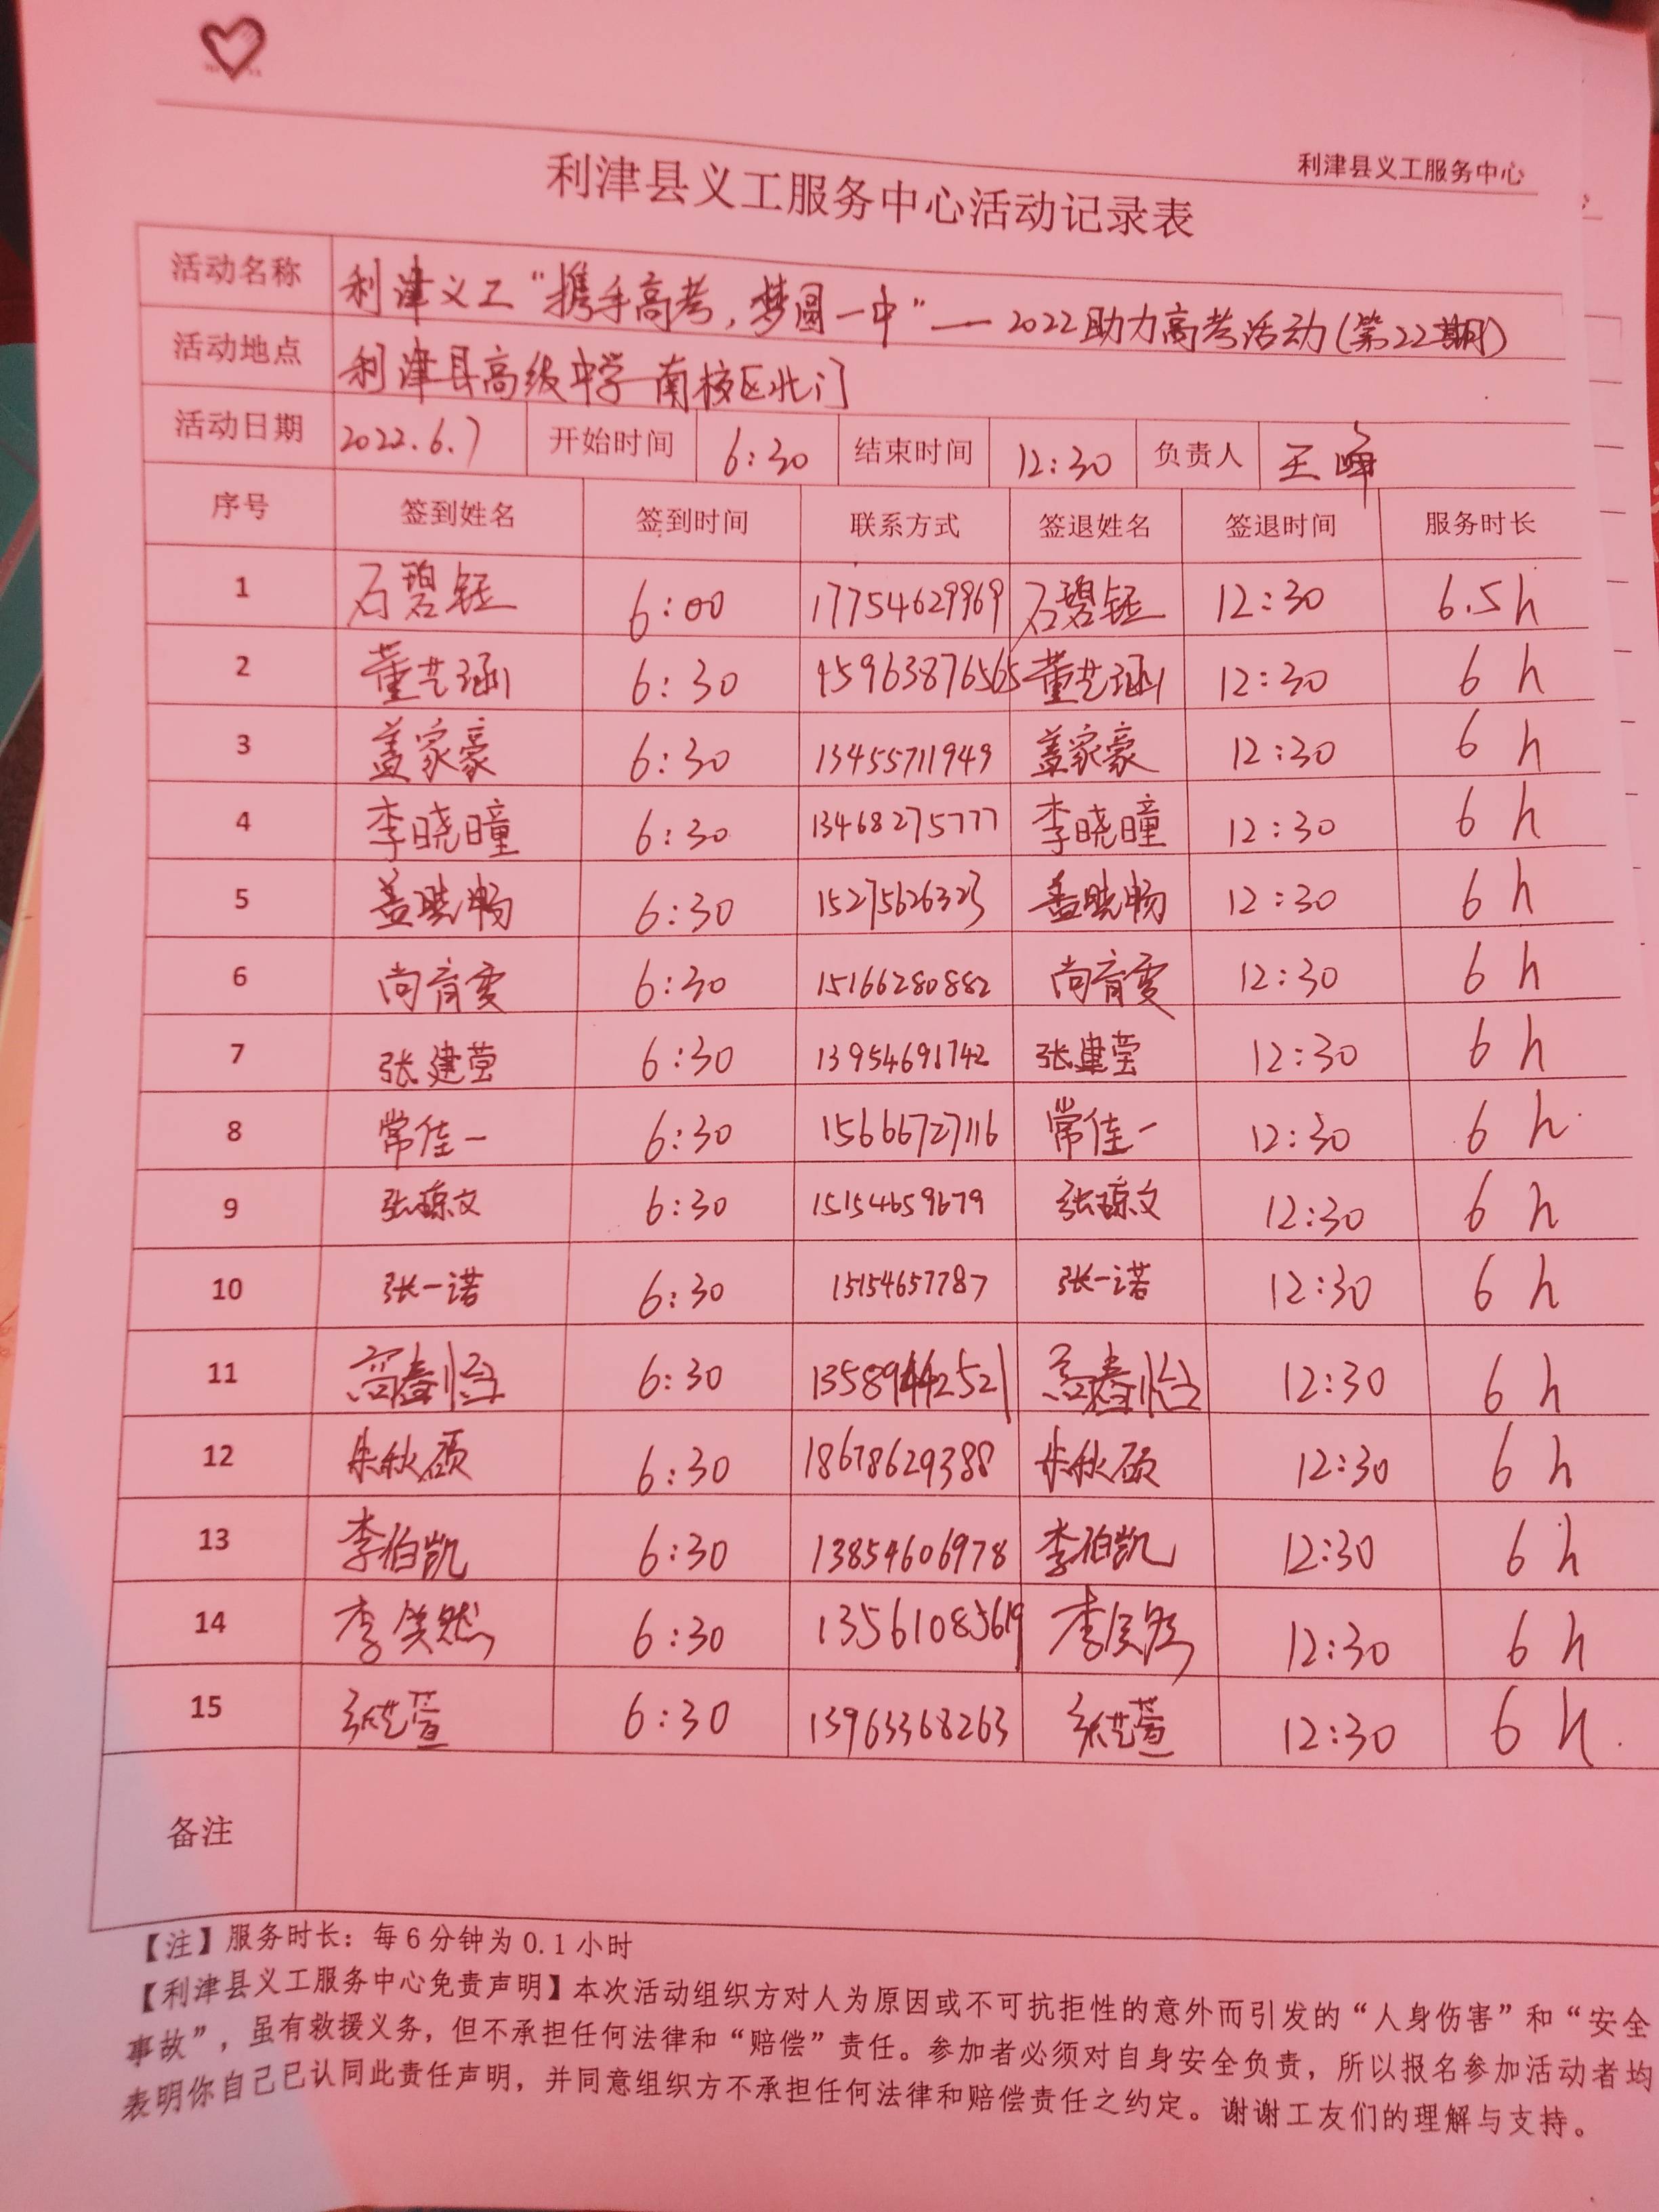 利津县义工服务中心
利津县义工服务中心活动记录表
活动名称 利津义工“携手高考，梦圆一中”—2022助力高考活动(第22期)
活动地点 利津县高级中学南校区北门
活动日期 2022.6.7 开始时间 6:30 结束时间 12:30 负责人 王峰
序号 签到姓名 签到时间 联系方式 签退姓名 签退时间 服务时长
1 石碧钰 6:00 17754629969 石碧钰 12:30 6.5h
2 董艺涵 6:30 15963876565 董艺涵 12:30 6 h
3 盖家豪 6:30 13455711949 盖家豪 12:30 6 h
4 李晓瞳 6:30 13468275777 李晓瞳 12:30 6 h
5 盖晓畅 6:30 15275626323 盖晓畅 12:30 6 h
6 6:30 15166280882 12:30 6 h
7 张建莹 6:30 13954691742 张建莹 12:30 6 h
8 常佳一 6:30 15666727116 常佳一 12:30 6 h
9 张琼文 6:30 15154659679 张琼文 12:30 6 h
10 张一诺 6:30 15154657787 张一诺 12:30 6 h
11 高春怡 6:30 12:30 6 h
12 朱秋硕 6:30 18678629388 朱秋硕 12:30 6 h
13 李伯凯 6:30 13854606978 李伯凯 12:30 6 h
14 李笑然 6:30 13561085619 李笑然 12:30 6 h
15 张艺萱 6:30 13963368263 张艺萱 12:30 6 h
备注
【注】服务时长：每6分钟为0.1小时
【利津县义工服务中心免责声明】本次活动组织方对人为原因或不可抗拒性的意外而引发的“人身伤害”和“安全
事故”，虽有救援义务，但不承担任何法律和“赔偿”责任。参加者必须对自身安全负责，所以报名参加活动者均
表明你自己已认同此责任声明，并同意组织方不承担任何法律和赔偿责任之约定。谢谢工友们的理解与支持。